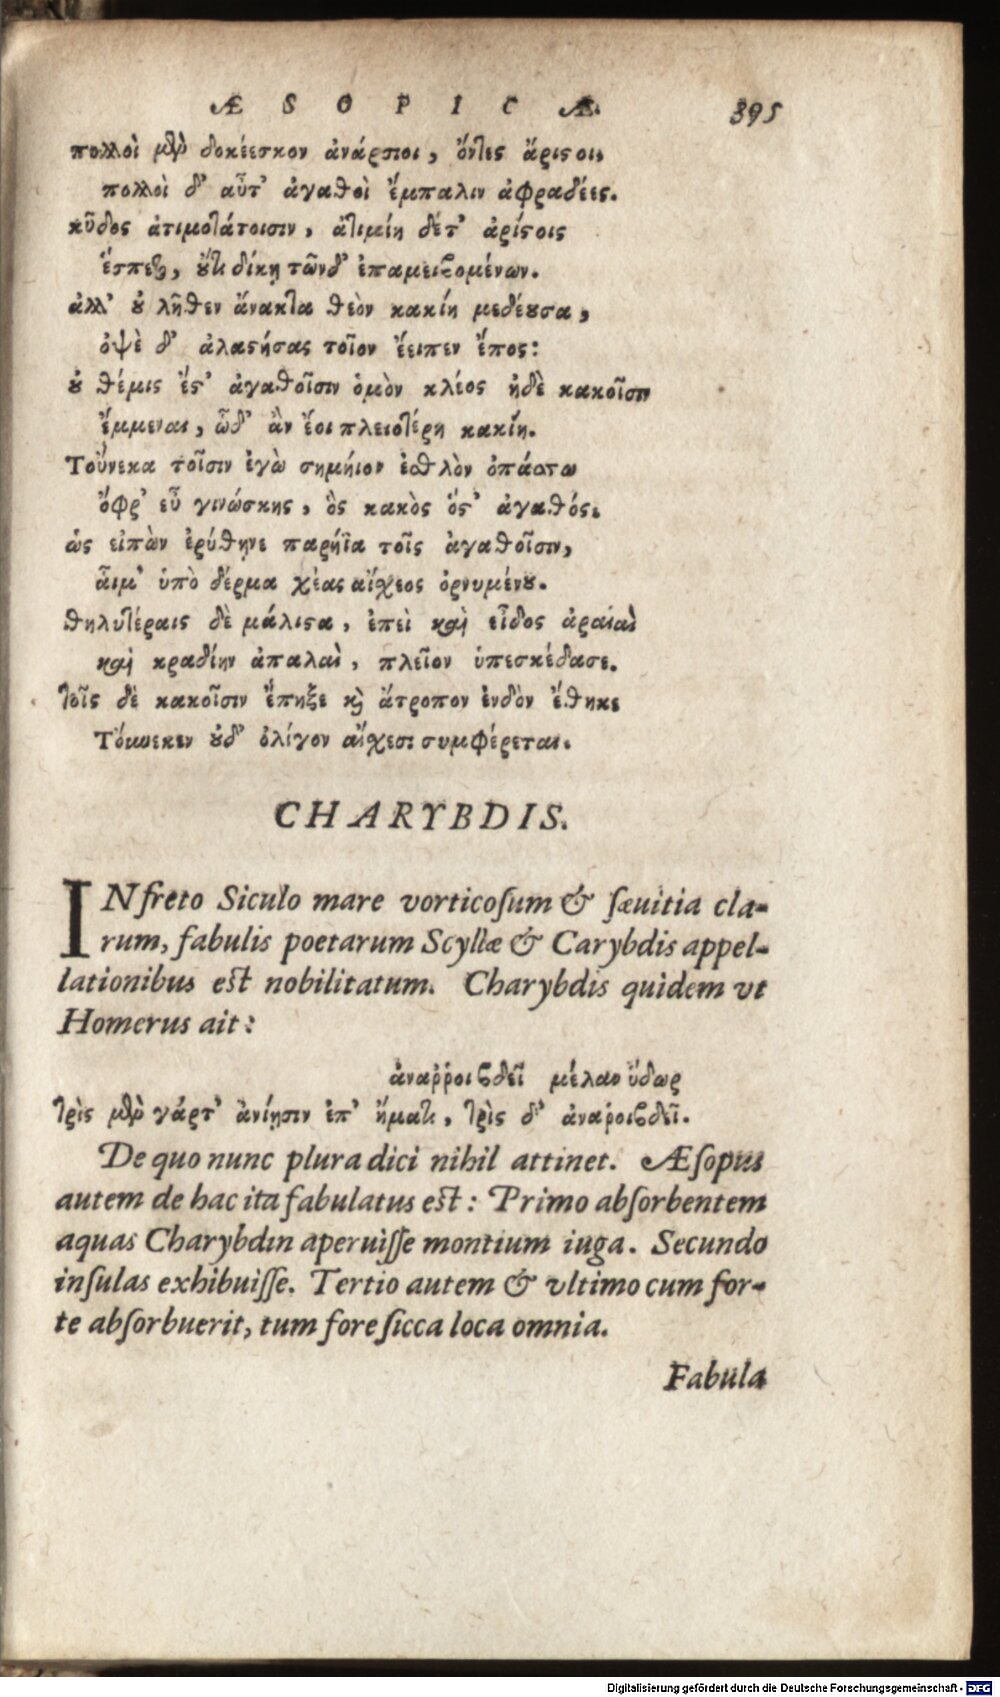 ÆSOPICÆ. 395
πολλοὶ μὲν δοκέεσκον ἀνάρσιοι, ὄντες ἄριστοι,
πολλοὶ δ' αὖτ' ἀγαθοὶ ἔμπαλιν ἀφραδέες.
κῦδος ἀτιμοτάτοισιν, ἀτιμίη δέτ' ἀρίστοις
ἕσπετο, οὔτι δίκῃ τῶνδ' ἐπαμειβομένων.
ἀλλ' οὐ λῆθεν ἄνακτα θεὸν κακίη μεδέουσα,
ὀψὲ δ' ἀλαστήσας τοῖον ἔειπεν ἔπος:
οὐ θέμις ἔστ' ἀγαθοῖσιν ὁμὸν κλέος ἠδὲ κακοῖσιν
ἔμμεναι, ὧδ' ἂν ἔοι πλειοτέρη κακίη.
Τοὔνεκα τοῖσιν ἐγὼ σημήιον ἐσθλὸν ὀπάσσω
ὄφρ' εὖ γινώσκῃς, ὃς κακὸς ὅστ' ἀγαθός.
ὡς εἰπὼν ἐρύθηνε παρήϊα τοῖς ἀγαθοῖσιν,
αἷμ' ὑπὸ δέρμα χέας αἴσχεος ὀρνυμένου.
θηλυτέραις δὲ μάλιστα, ἐπεὶ καὶ εἶδος ἀραιαὶ
καὶ κραδίην ἁπαλαὶ, πλεῖον ὑπεσκέδασε.
τοῖς δὲ κακοῖσιν ἔπηξε καὶ ἄτροπον ἐνδὸν ἔθηκε
οὐδ' ὀλίγον αἴσχεσι συμφέρεται.
CHARYBDIS.
IN freto Siculo mare vorticosum & sæuitia cla-
rum, fabulis poetarum Scyllæ & Carybdis appel-
lationibus est nobilitatum. Charybdis quidem vt
Homerus ait:
ἀναῤῥοιβδεῖ μέλαν ὕδωρ
τρὶς μὲν γάρτ' ἀνίησιν ἐπ' ἤματι, τρὶς δ' ἀναροιβδεῖ.
De quo nunc plura dici nihil attinet. Æsopus
autem de hac ita fabulatus est: Primo absorbentem
aquas Charybdin aperuisse montium iuga. Secundo
insulas exhibuisse. Tertio autem & vltimo cum for-
te absorbuerit, tum fore sicca loca omnia.
Fabula
Digitalisierung gefördert durch die Deutsche Forschungsgemeinschaft - DFG